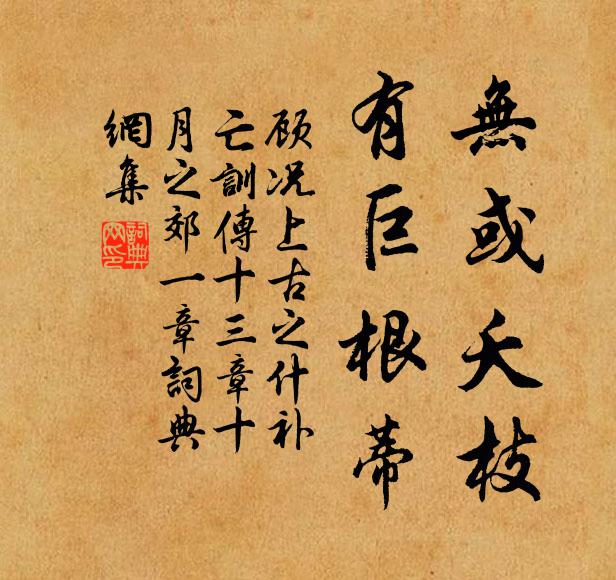 無或夭枝
有巨根蒂
顾况上古之什补
亡訓傳十三章十
月之郊一章詞典
網集
詞典
网印